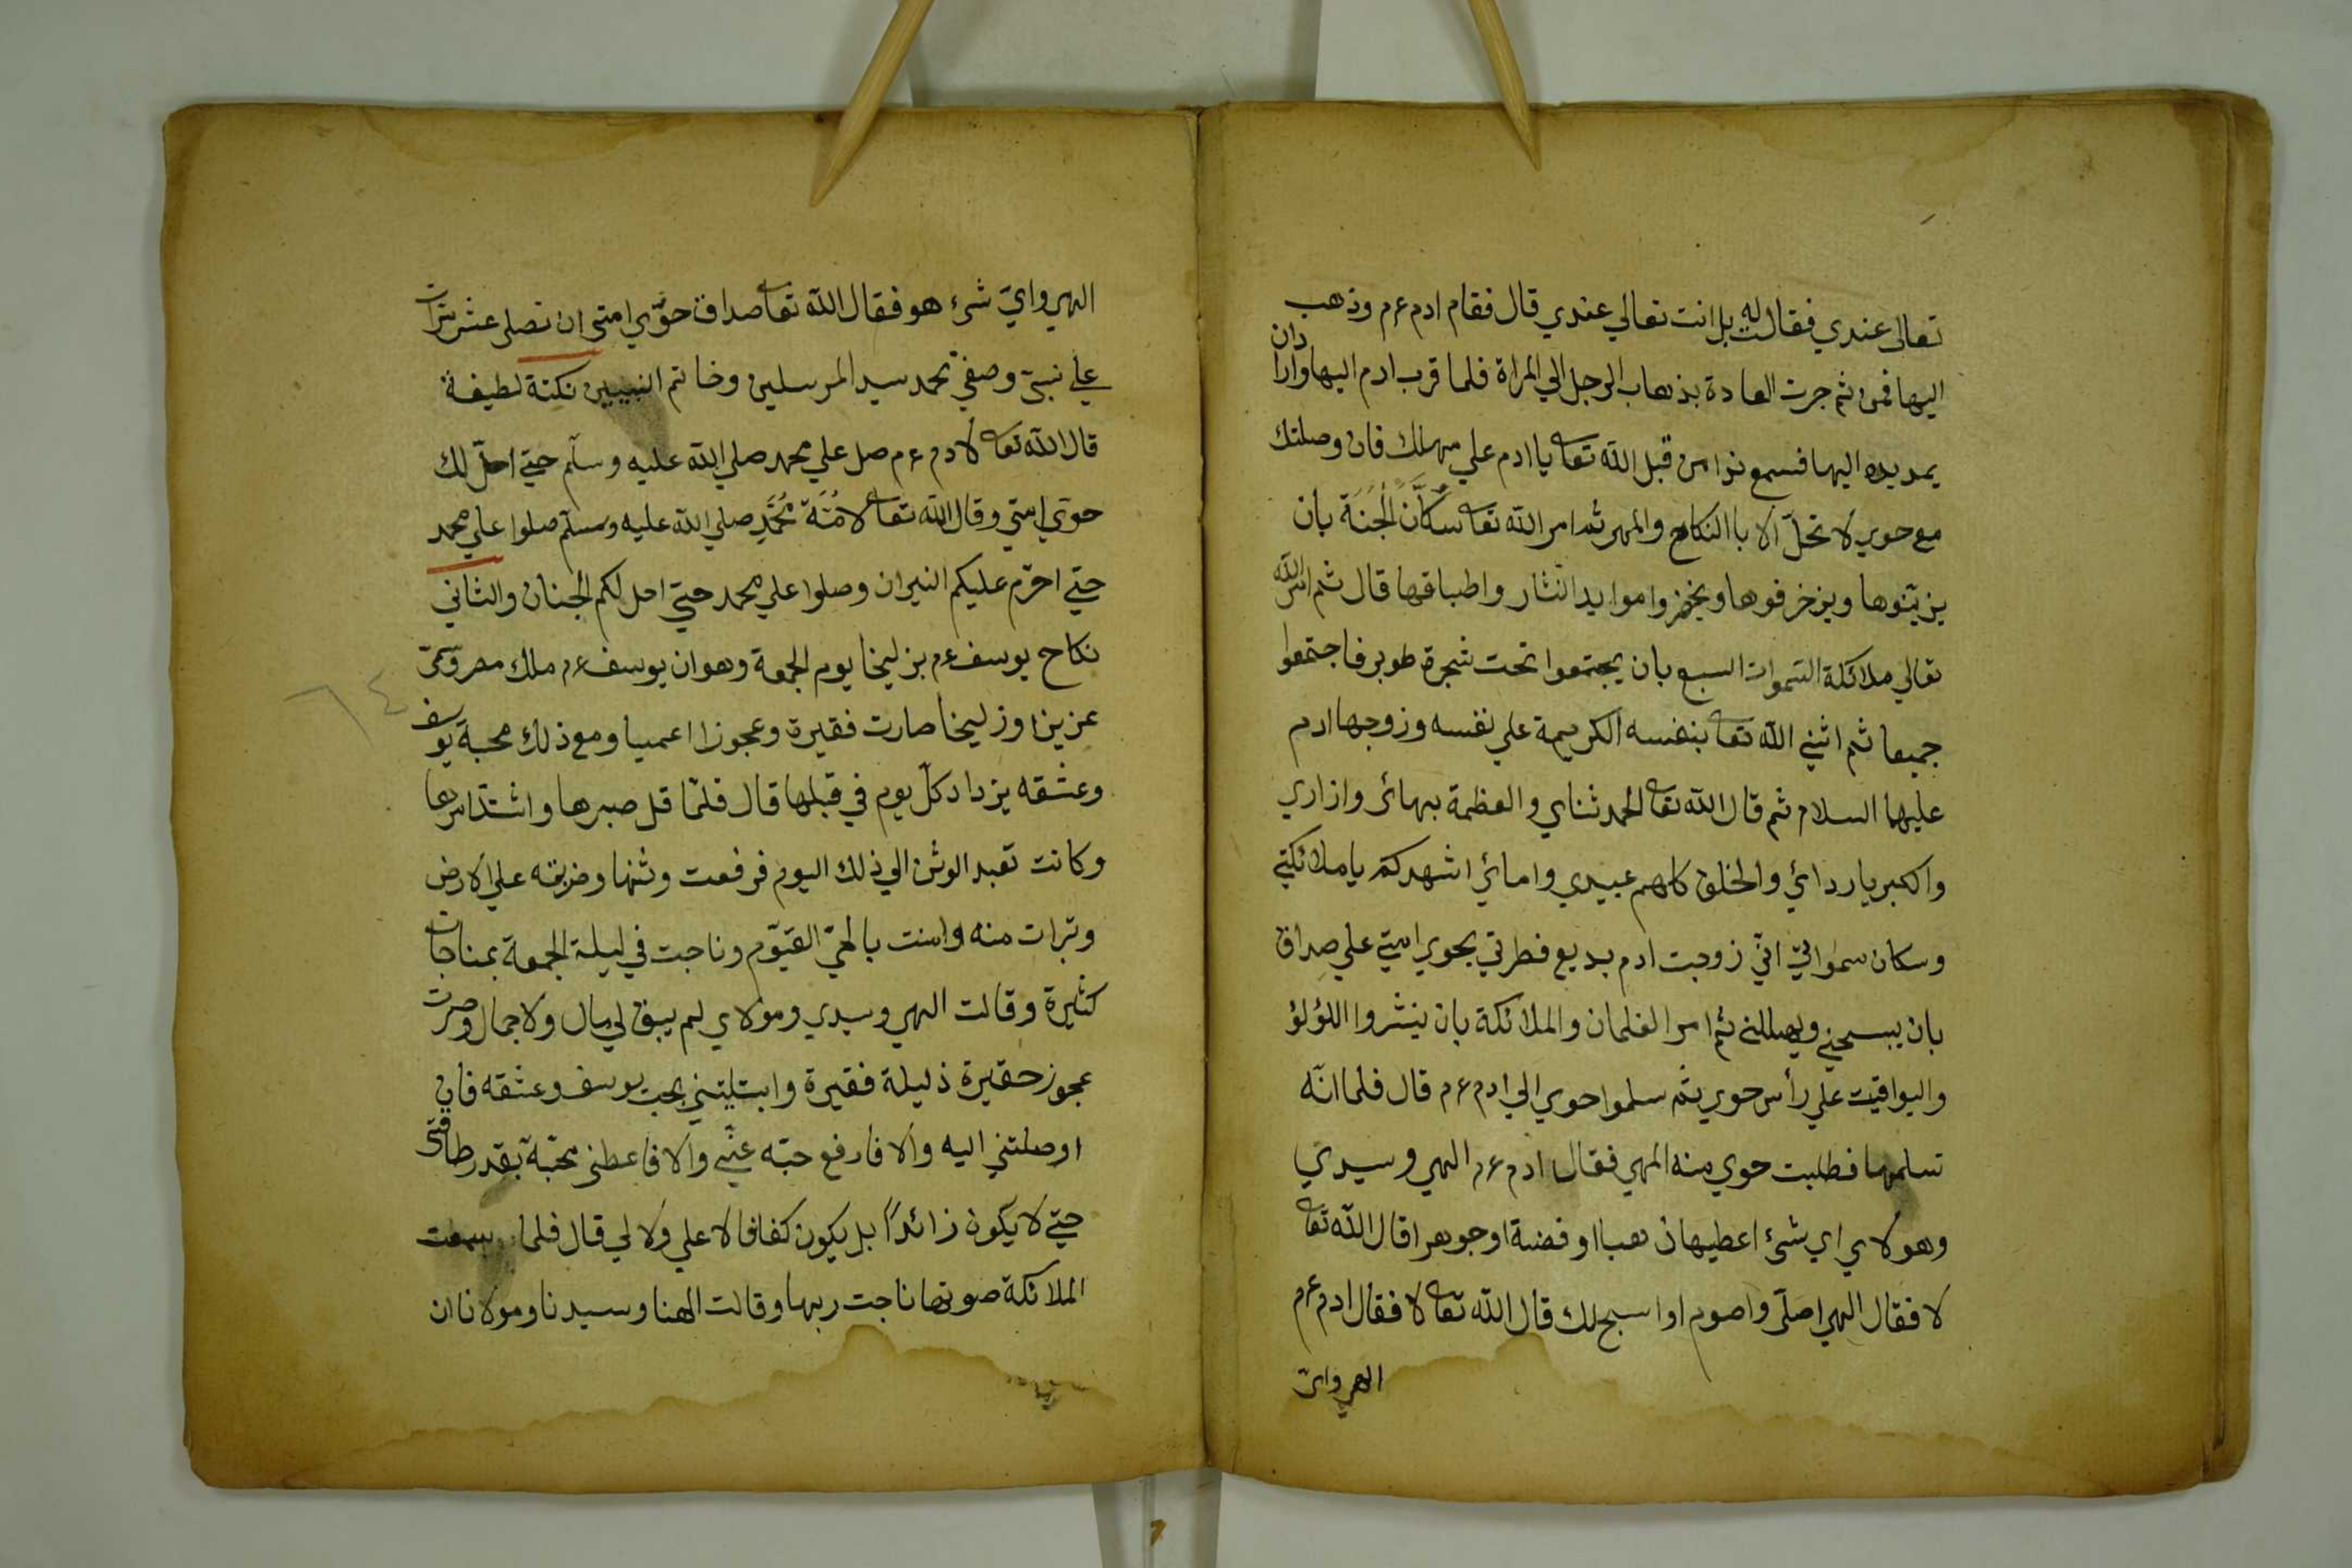 تعالى عندي فقالت له بل انت تعالي عندي قال فقام ادم ع م وذهب
اليها فمن ثم جرت العادة بذهاب الرجل الي المراة فلما قرب ادم اليها وارادان
يمد يده اليها فسمع ندا من قبل الله تعا يا ادم علي مهلك فان وصلتك
مع حوي لا تحل الا با النكاح والمهر ثم امر الله تعا سكّان الجنة بان
يزيّنوها ويزخرفوها ويحضروا موايد النثار واطباقها قال ثم امر الله
تعالي ملائكة السموات السبع بان يجتمعوا تحت شجرة طوبي فاجتمعوا
جميعا ثم اثني الله تعا بنفسه الكريمة علي نفسه وزوجها ادم
عليهما السلام ثم قال الله تعا الحمد ثناي والعظمة بهائي وازاري
واكبريا ردائي والخلق كلهم عبيدي وامائي اشهدكم يا ملائكتي
وسكان سمواتي انّي زوجت ادم بديع فطرتي بحوي امتي علي صداق
بان يسبحني ويهللني ثم امر الغلمان والملائكة بان ينثروا اللؤلؤ
واليواقيت علي رأس حوي ثم سلموا حوي الي ادم ع م قال فلما انّه
تسلمها فطلبت حوي منه المهر فقال ادم ع م الهي وسيدي
وهولاي اي شئ اعطيها ذهبا او فضة او جوهرا قال الله تعا
لا فقال الهي اصلّى واصوم او اسبح لك قال الله تعا لا فقال ادم ع م
الهي واي
الهي وايّ شئ هو فقال الله تعا صداق حوّي امتي ان تصلى عشر مرّات
علي نبيّ وصفيّ محمد سيد المرسلين وخاتم النبيين نكتة لطيفة
قال الله تعا لادم ع م صل علي محمد صلي الله عليه وسلّم حتي احلّ لك
حوّي امتي وقال الله تعا لامّة محمّد صلي الله عليه وسلّم صلوا علي محمد
حتي احرّم عليكم النيران وصلوا علي محمد حتي احل لكم الجنان والثاني
نكاح يوسف ع م بزليخا يوم الجمعة وهو ان يوسف ع م ملك مصر وسمّي
عزيزا وزليخا صارت فقيرة وعجوزا اعميا ومع ذلك محبة يوسف
وعشقه يزداد كلّ يوم في قبلها قال فلمّا قل صبرها واشتدّ امرها
وكانت تعبد الوثن الي ذلك اليوم فرفعت وثنها وضربته علي الارض
وتبرات منه وامنت بالحيّ القيّوم وناجت في ليلة الجمعة بمناجات
كثيرة وقالت الهي وسيدي ومولاي لم يبق لي مال ولا جمال وصرت
عجوز حقيرة ذليلة فقيرة وابتليتني بحب يوسف وعشقه فان
اوصلتني اليه والا فارفع حبّه عنّي والا فاعطني محبّة بقدر طاقتي
حتي لا يكون زائداً بل يكون كفافا لا علي ولا لي قال فلما سمعت
الملائكة صوتها ناجت ربها وقالت الهنا وسيدنا ومولانا ان
٦٤